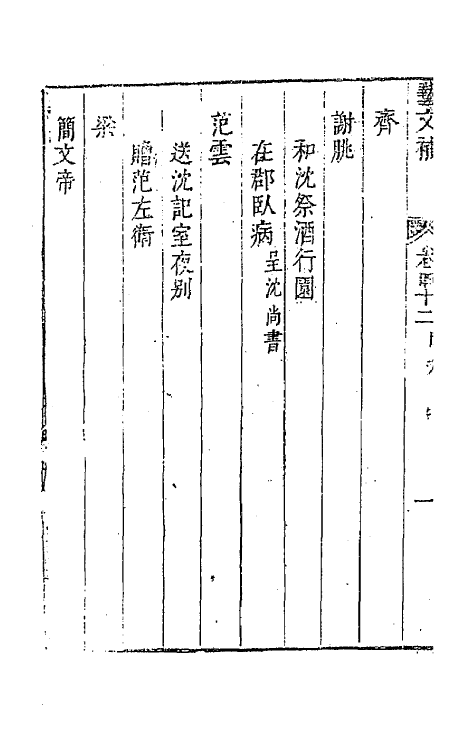 藝文補 卷四十二 一
齊
謝朓
和沈祭酒行園
在郡臥病呈沈尚書
范雲
送沈記室夜别
贈范左衛
梁
簡文帝